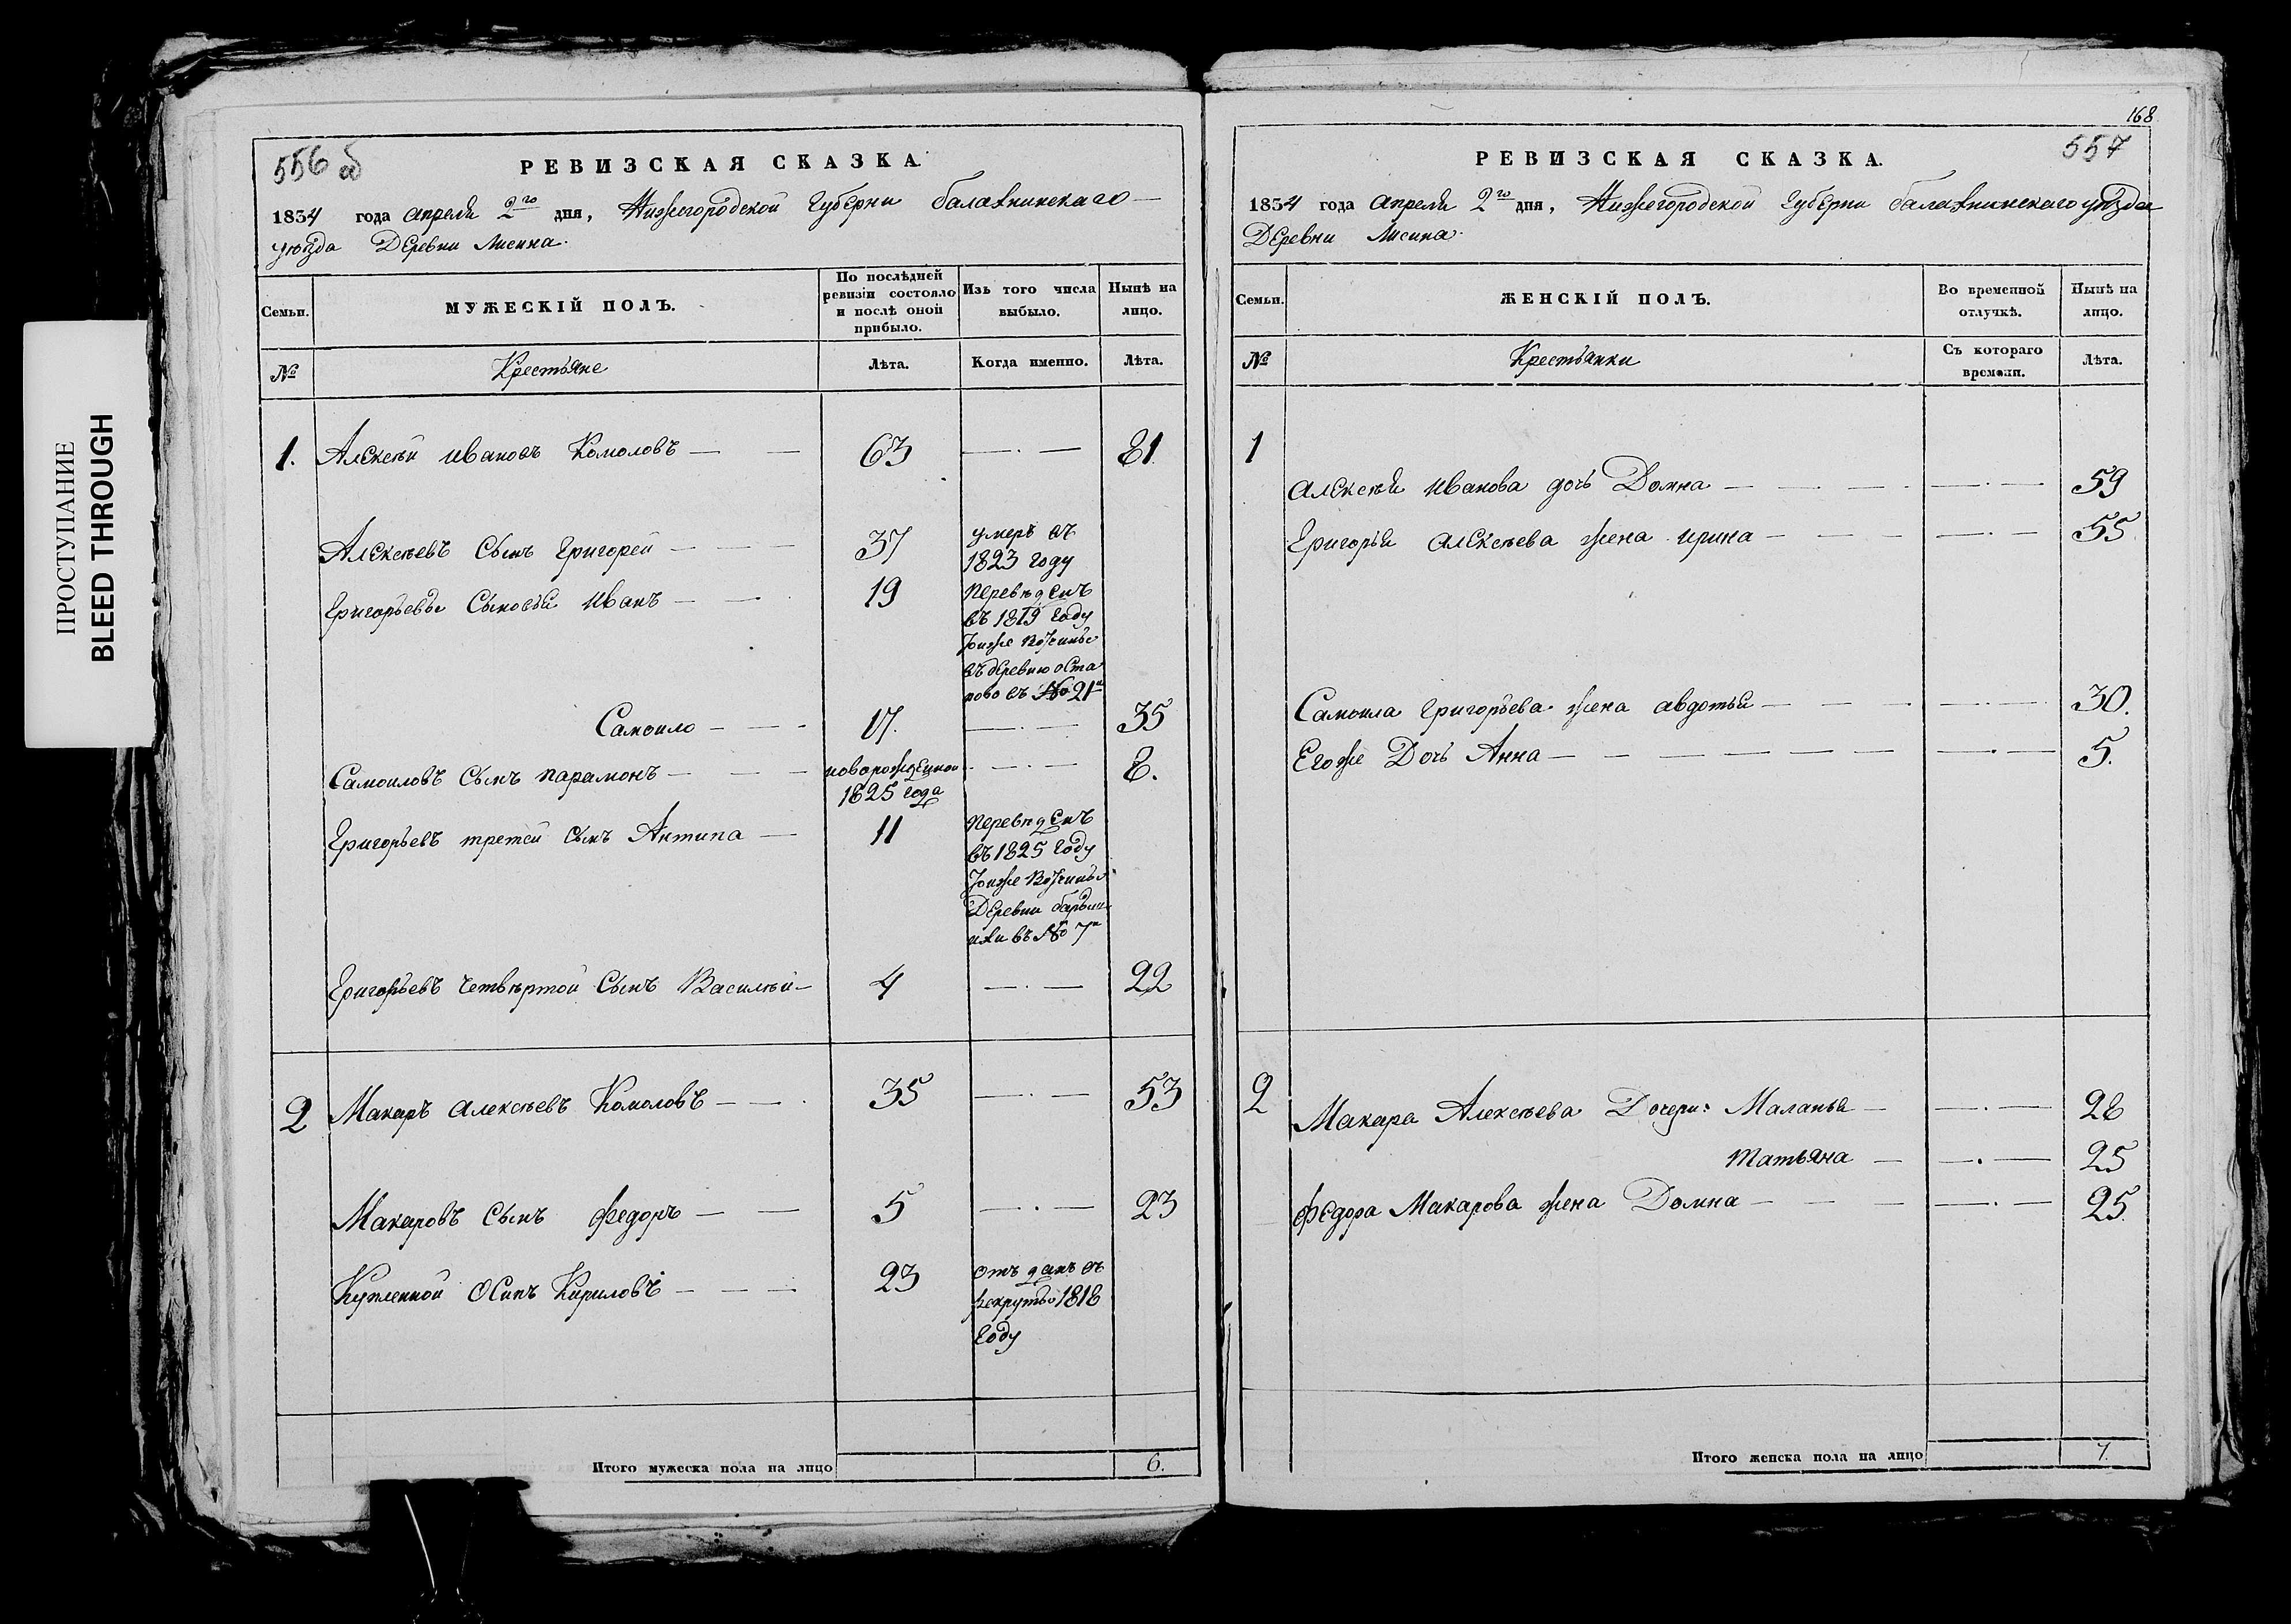 ПРОСТУПАНИЕ
BLEED THROUGH
556 об
РЕВИЗСКАЯ СКАЗКА.
1834 года апреля 2го дня, Нижегородской Губерни балахнинскаго
уѣзда Деревни Лисина.
Семьи.
МУЖЕСКІЙ ПОЛЪ.
По послѣдней ревизіи состояло и послѣ оной прибыло.
Изъ того числа выбыло.
Нынѣ на лицо.
№
Крестьяне
Лѣта.
Когда именно.
Лѣта.
1. Алексѣй ивановъ Комоловъ — — 63 —.— 81
Алексѣевъ Сынъ Григорей — — — 37 умеръ въ
1823 году
Григорьевы Сыновья иванъ — — 19 Переведенъ
въ 1819 году
тоиже вотчины
въ деревню оста
пово въ № 21й
Самоило — — 17. —.— 35
Самоиловъ Сынъ парамонъ — — — новорожденной —.— 8.
1825 года
Григорьевъ третей Сынъ Антипа — 11 Переведенъ
въ 1825 году
тоиже вотчины
Деревни
въ № 7й
Григорьевъ Четвертой Сынъ Василей — 4 —.— 22
2 Макаръ алексѣевъ Комоловъ — — 35 —.— 53
Макаровъ Сынъ федоръ — — 5 —.— 23
Купленной Осипъ Кириловъ — — — 23 отъданъ въ
рекруты 1818
году
Итого мужеска пола на лицо 6.
168
557
РЕВИЗСКАЯ СКАЗКА.
1834 года апреля 2го дня, Нижегородской Губерни балахнинскаго уѣзда
Деревни Лисина.
Семьи.
ЖЕНСКІЙ ПОЛЪ.
Во временной отлучкѣ.
Нынѣ на лицо.
№
Крестьянки
Съ котораго времени.
Лѣта.
1
алексѣя иванова дочь Домна — — — —.— 59
Григорья алексѣева жена ирина — — — —.— 55
Самоила григорьева жена авдотья — — — —.— 30.
Егоже Дочь Анна — — — — — — —.— 5.
2 Макара Алексѣева Дочери: Маланья — —.— 28
татьяна — —.— 25
федора Макарова жена Домна — — — —.— 25.
Итого женска пола на лицо 7.